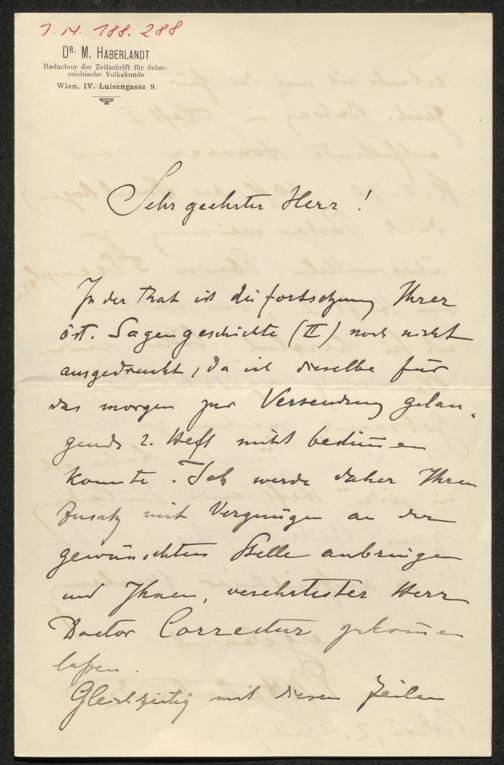 J. N. 188.288
DR. M. HABERLANDT
Redacteur der Zeitschrift für öster-
reichische Volkskunde
Wien, IV. Luisengasse 9.
Sehr geehrter Herr!
In der That ist die fortsetzung Ihrer
öst. Sagengeschichte (II) noch nicht
ausgedruckt, da ich dieselbe für
das morgen zur Versendung gelan-
gende 2. Heft nicht
konnte. Ich werde daher Ihren
Zusatz mit Vergnügen an der
gewünschten Stelle anbringen
und Ihnen, verehrtester Herr
Doctor Correctur zukommen
lassen.
Gleichzeitig mit diesen Zeilen